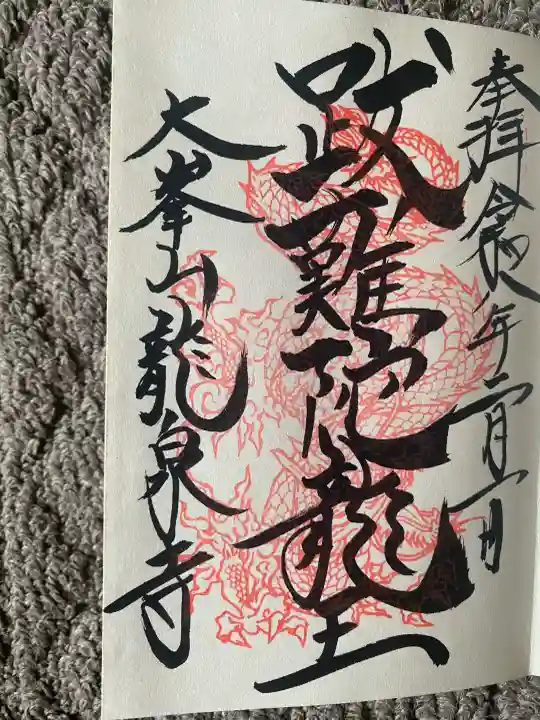 奉拝 令和 年 月 日
跋難陀龍王
大峯山龍泉寺